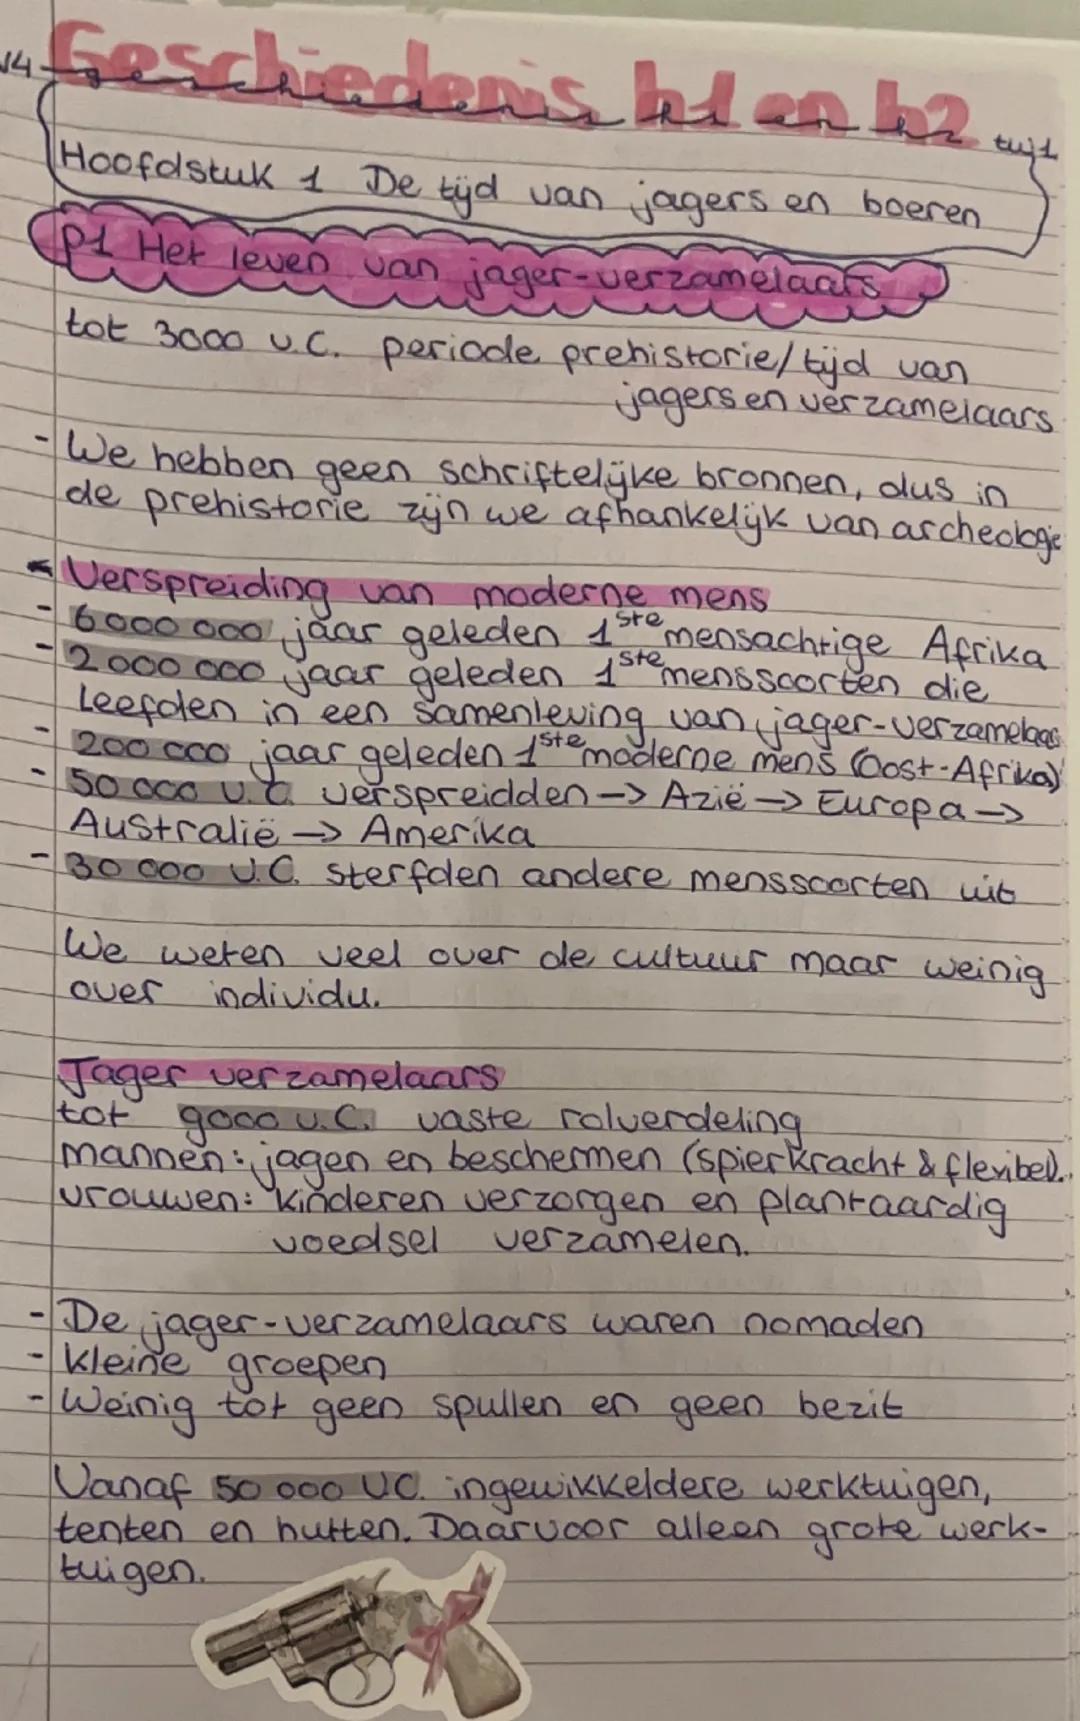 Geschiedenis h1 en h2
geschiedenis h1 en h2
V4
twj1
Hoofdstuk 1 De tijd van jagers en boeren
p1 Het leven van jager-verzamelaars
tot 3000 v.C. periode prehistorie/tijd van
jagers en verzamelaars
- We hebben geen schriftelijke bronnen, dus in
de prehistorie zijn we afhankelijk van archeologie
Verspreiding van moderne mens
- 6000 000 jaar geleden 1ste mensachtige Afrika
- 2000 000 jaar geleden 1ste menssoorten die
Leefden in een samenleving van jager-verzamelaars
- 200 000 jaar geleden 1ste moderne mens (Oost-Afrika)
- 50 000 v.C. verspreidden -> Azië -> Europa ->
Australië -> Amerika
- 30 000 v.C. sterfden andere menssoorten uit
We weten veel over de cultuur maar weinig
over individu.
Jager verzamelaars
tot 9000 v.C. vaste rolverdeling
mannen: jagen en beschermen (spierkracht & flexibel).
vrouwen: kinderen verzorgen en plantaardig
voedsel verzamelen.
- De jager-verzamelaars waren nomaden
- kleine groepen
- Weinig tot geen spullen en geen bezit
Vanaf 50 000 v.C. ingewikkeldere werktuigen,
tenten en hutten. Daarvoor alleen grote werk-
tuigen.